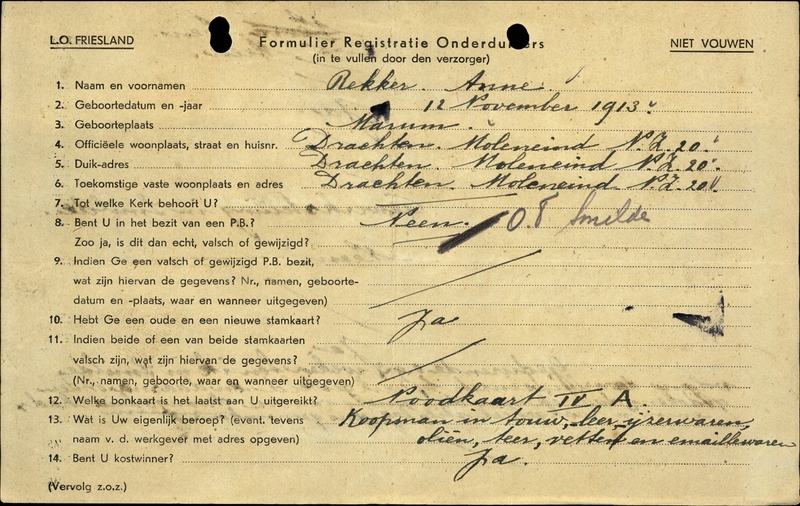 L.O. FRIESLAND
Formulier Registratie Onderduikers
NIET VOUWEN
(in te vullen door den verzorger)
1. Naam en voornamen Rekker. Anne.
2. Geboortedatum en -jaar 12 November 1913.
3. Geboorteplaats Marum.
4. Officiëele woonplaats, straat en huisnr. Drachten. Moleneind N.Z. 20.
5. Duik-adres Drachten. Moleneind N.Z. 20.
6. Toekomstige vaste woonplaats en adres Drachten. Moleneind N.Z. 20.
7. Tot welke Kerk behoort U?
8. Bent U in het bezit van een P.B.? Neen. O.T. Smilde
Zoo ja, is dit dan echt, valsch of gewijzigd?
9. Indien Ge een valsch of gewijzigd P.B. bezit,
wat zijn hiervan de gegevens? Nr., namen, geboorte-
datum en -plaats, waar en wanneer uitgegeven)
10. Hebt Ge een oude en een nieuwe stamkaart? Ja
11. Indien beide of een van beide stamkaarten
valsch zijn, wat zijn hiervan de gegevens?
(Nr., namen, geboorte, waar en wanneer uitgegeven)
12. Welke bonkaart is het laatst aan U uitgereikt? Noodkaart IV A.
13. Wat is Uw eigenlijk beroep? (event. tevens Koopman in touw, leer, ijzerwaren,
naam v. d. werkgever met adres opgeven) oliën, teer, vetten en emaillewaren
14. Bent U kostwinner? Ja.
(Vervolg z.o.z.)